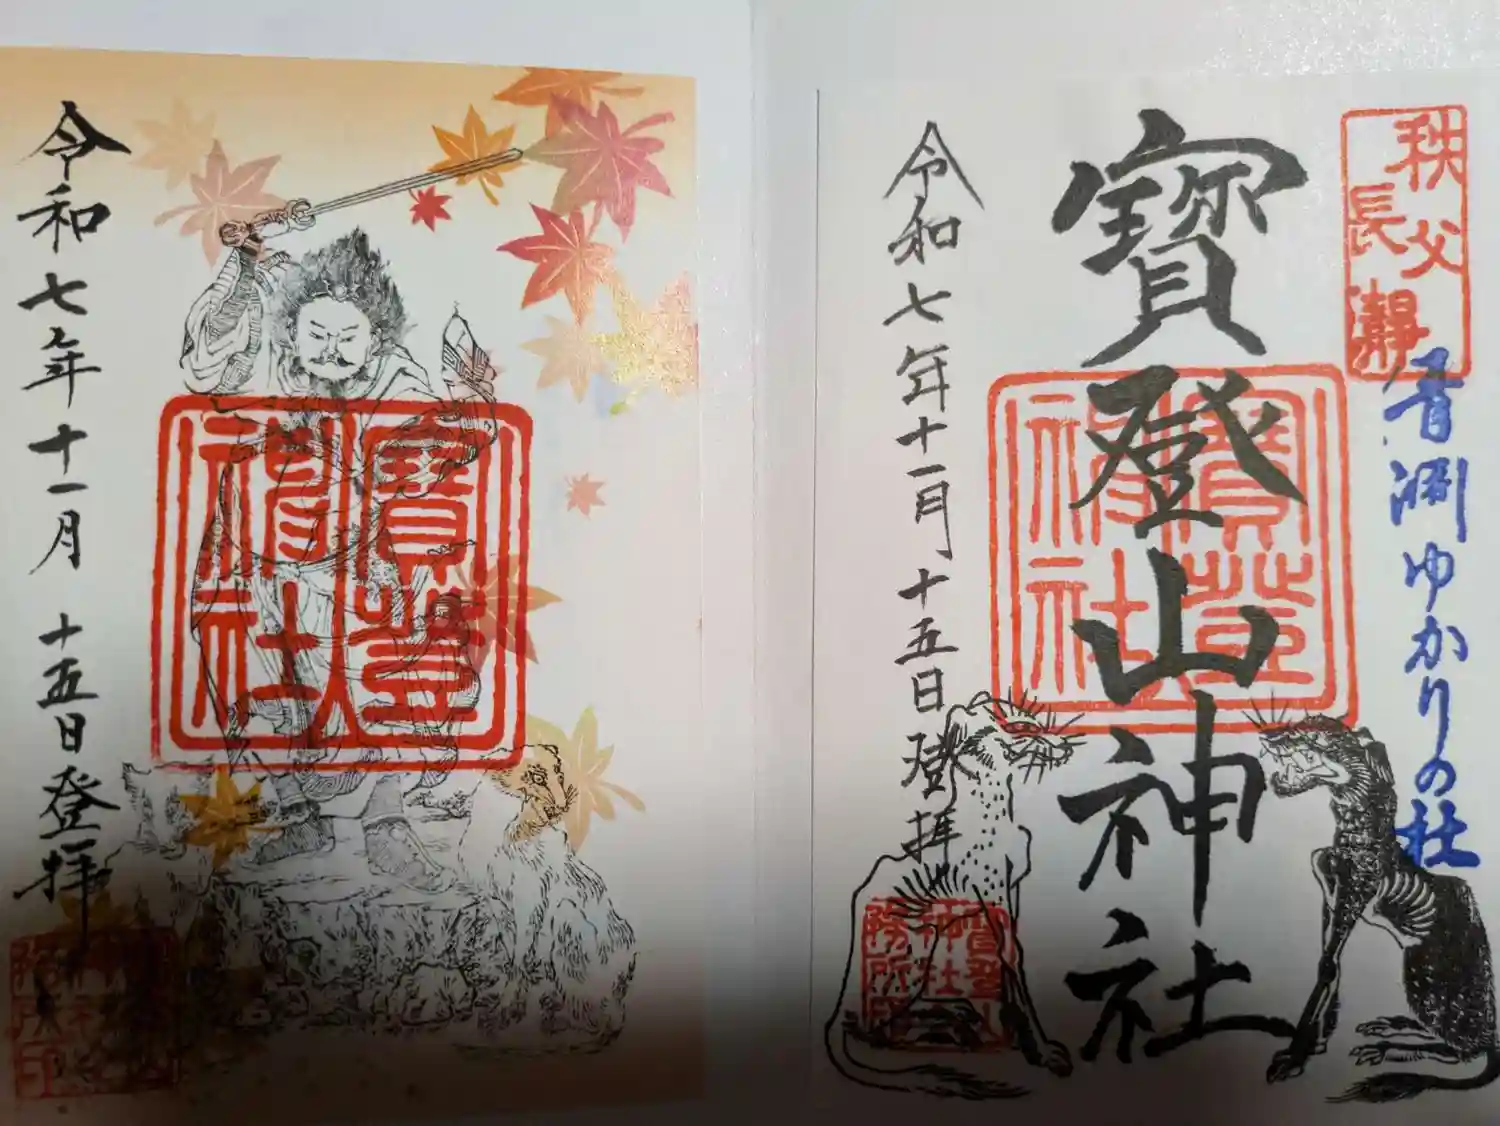 秩父
長瀞
青淵ゆかりの社
寶登山神社
寶登
神社
令和七年十一月十五日登拝
寶登山
神社
務所印
寶登
神社
令和七年十一月十五日登拝